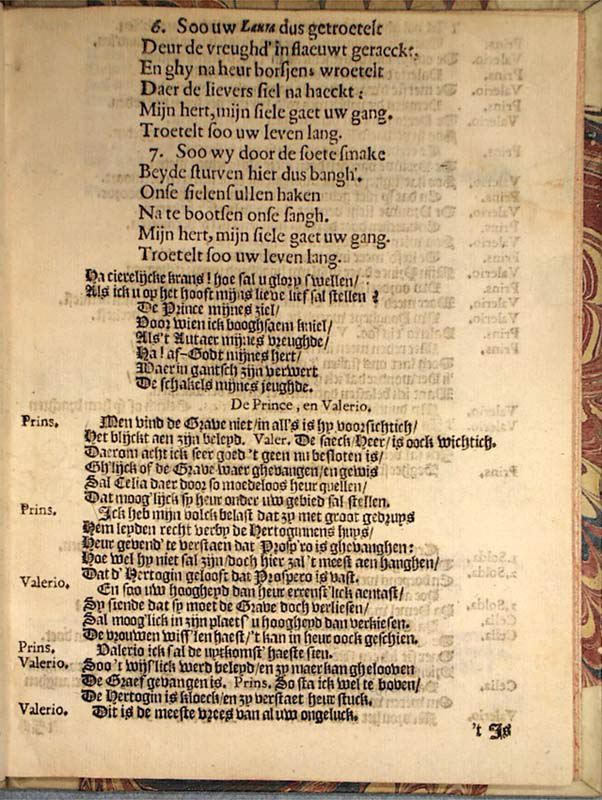 6. Soo uw Laura dus getroetelt
Deur de vreughd' in flaeuwt geraeckt,
En ghy na heur borsjens wroetelt
Daer de lievers siel na haeckt:
Mijn hert, mijn siele gaet uw gang.
Troetelt soo uw leven lang.
7. Soo wy door de soete smake
Beyde sturven hier dus bangh'.
Onse sielens ullen haken
Na te bootsen onse sangh.
Mijn hert, mijn siele gaet uw gang.
Troetelt soo uw leven lang.
Ha cierelijcke krans! hoe sal u glory swellen/
Als ick u op het hooft mijns lieve lief sal stellen?
De Prince mijnes ziel/
Voor wien ick booghsaem kniel/
Als't Autaer mijnes vreughde/
Ha! af-Godt mijnes hert/
Waer in gantsch zijn verwert
De schakels mijnes jeughde.
De Prince, en Valerio.
Prins. Men vind de Grave niet/in all's is hy voorsichtich/
Het blijckt aen zijn beleyd. Valer. De saeck/Heer/is oock wichtich.
Daerom acht ick seer goed 't geen nu besloten is/
Gh'lijck of de Grave waer ghevangen/en gewis
Sal Celia daer door so moedeloos heur quellen/
Dat moog'lijck sy heur onder uw gebied sal stellen.
Prins. Ick heb mijn volck belast dat zy met groot gedruys
Hem leyden recht verby de Hertoginnens huys/
Heur gevend' te verstaen dat Prosp'ro is ghevanghen:
Hoe wel hy niet sal zijn/doch hier zal 't meest aen hanghen/
Dat d' Hertogin gelooft dat Prospero is vast.
Valerio. En soo uw hoogheyd dan heur errenst'lick aentast/
Sy siende dat sy moet de Grave doch verliesen/
Sal moog'lick in zijn plaets' u hoogheyd dan verkiesen.
De vrouwen wiss'len haest/'t kan in heur oock geschien.
Prins. Valerio ick sal de uytkomst' haeste sien.
Valerio. Soo 't wijs'lick werd beleyd/en zy maer kan ghelooven
De Graef gevangen is. Prins. So sta ick wel te boven/
De Hertogin is kloeck/en zy verstaet heur stuck.
Valerio. Dit is de meeste vrees van al uw ongeluck.
't Is